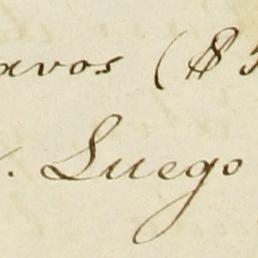 avos ($
. Luego